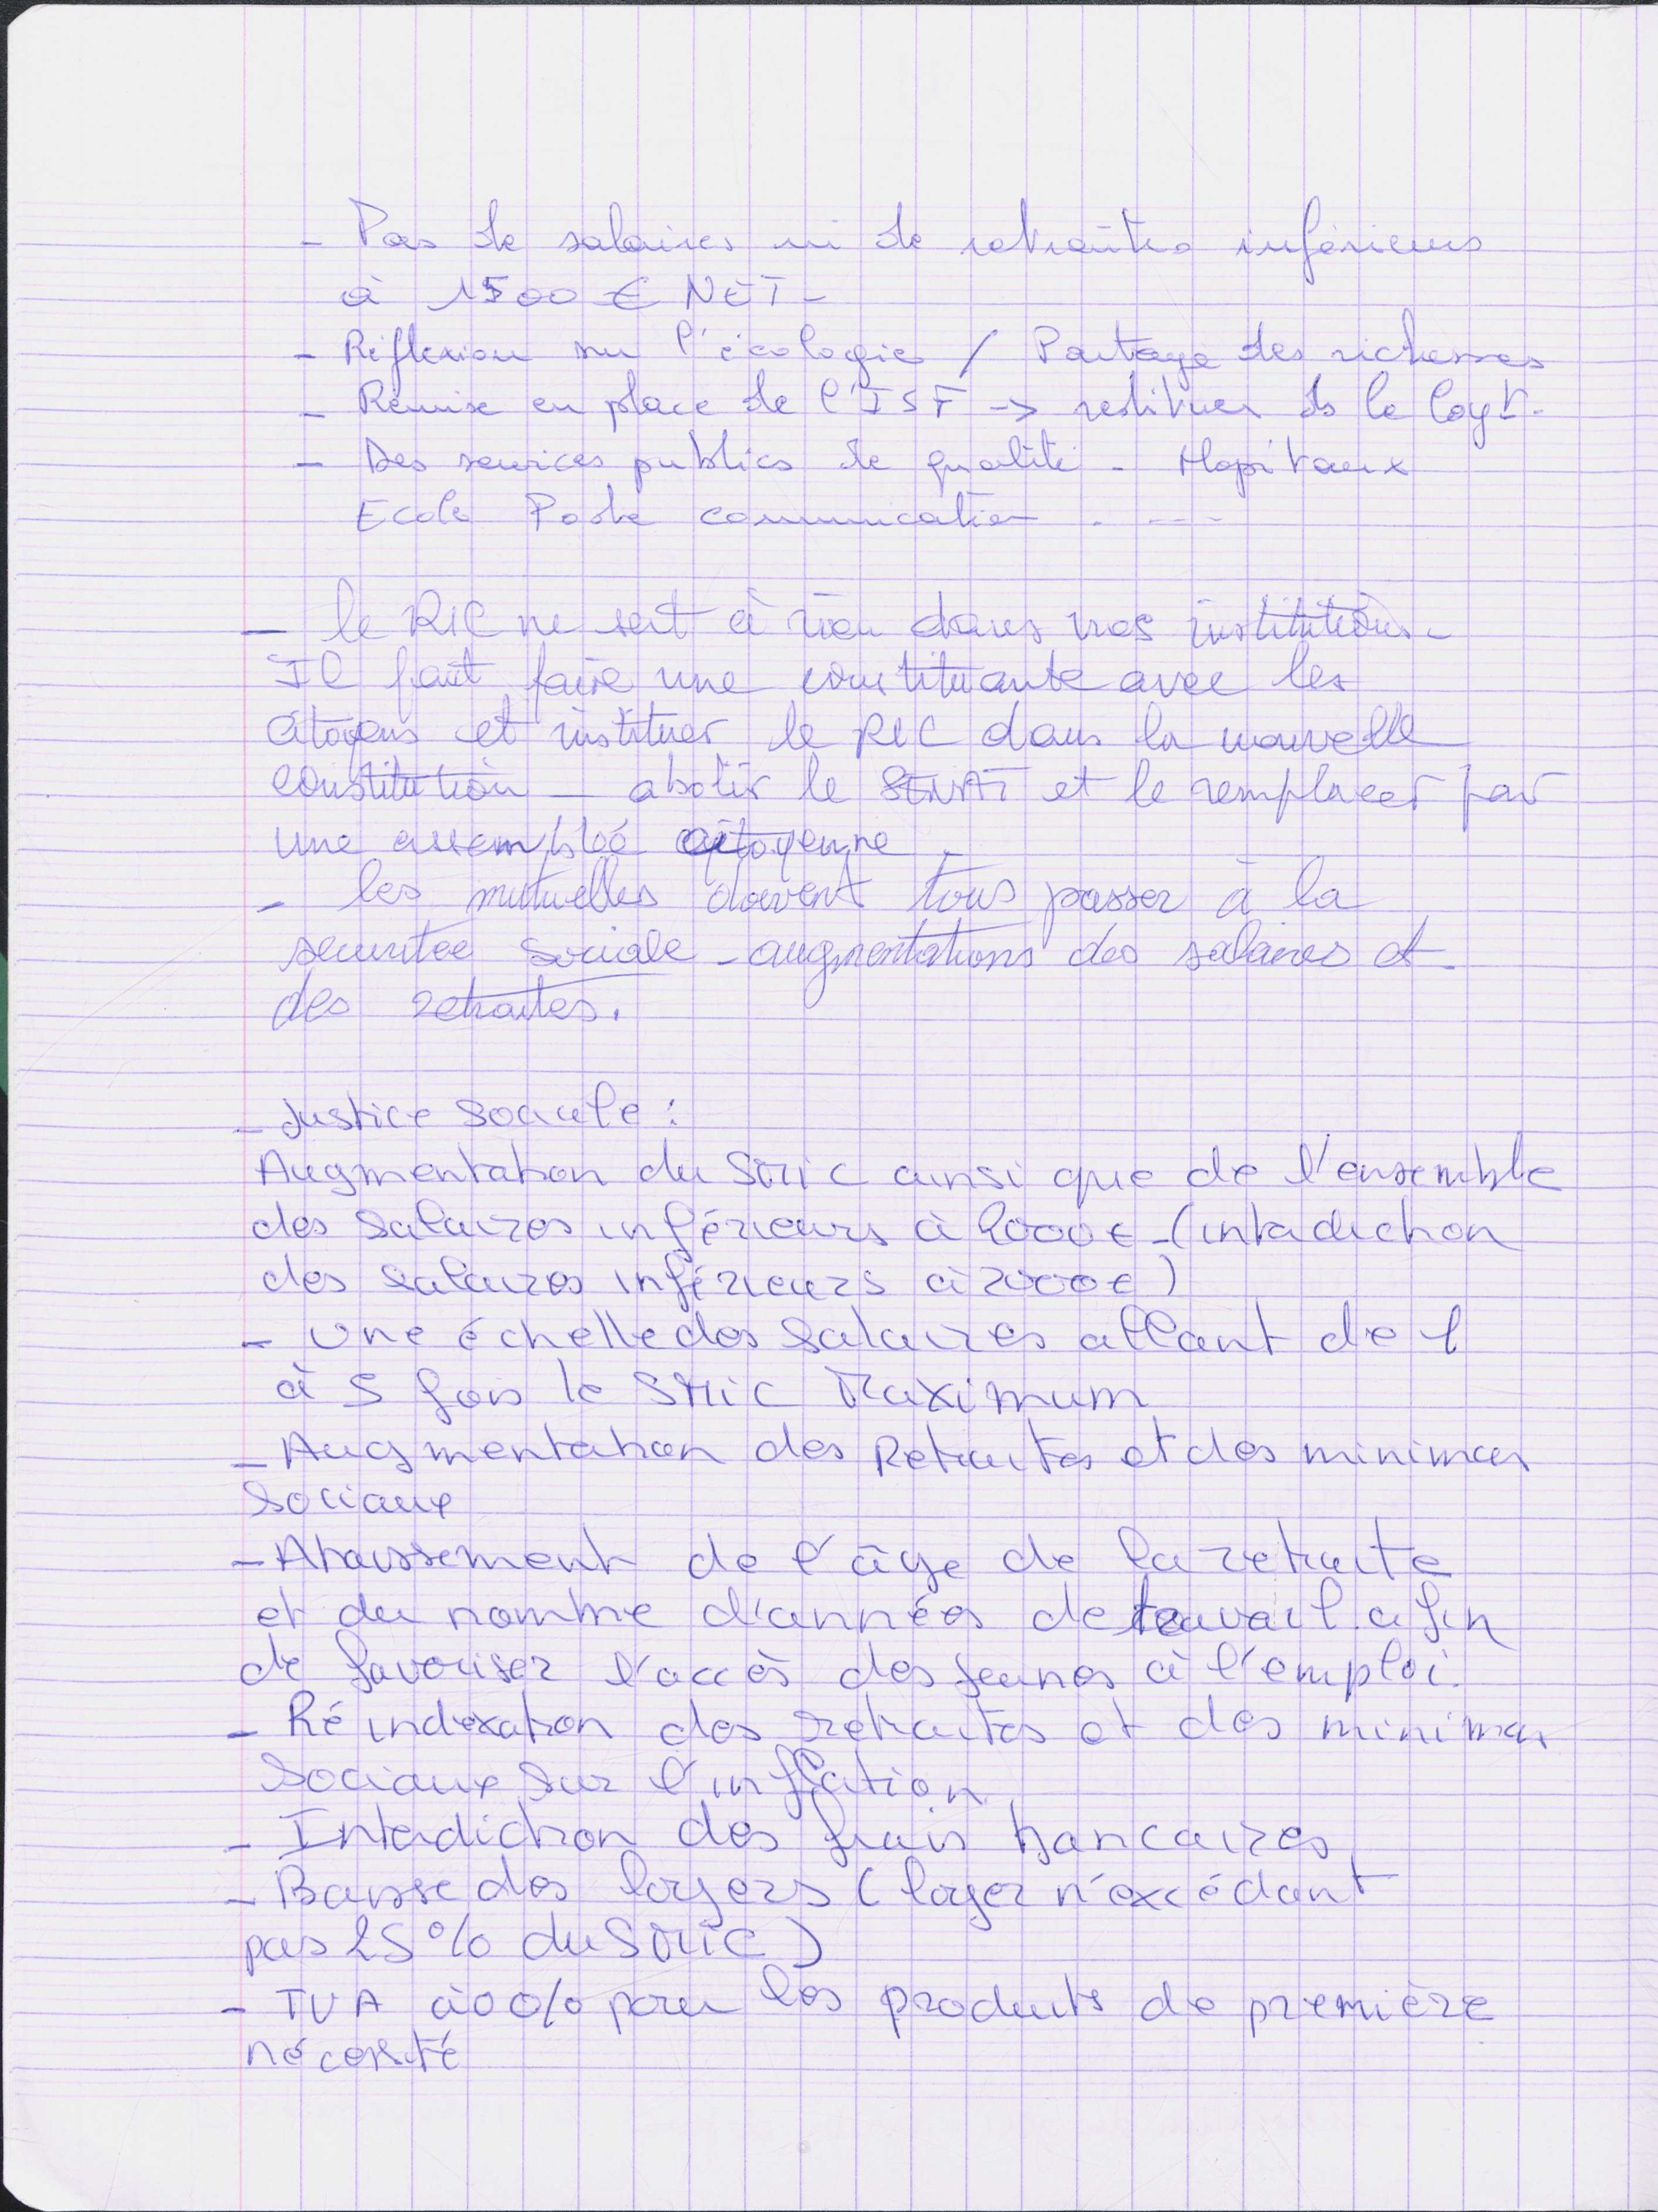 - Pas de salaires ni de retraites inférieurs
à 1500 € NET -
- Réflexion sur l'écologie / Partage des richesses
- Remise en place de l'ISF -> restituer ds le logt.
- Des services publics de qualité - Hopitaux
Ecole Poste communication . ---
- le RIC ne sert à rien dans nos institutions -
Il faut faire une constituante avec les
citoyens et instituer le RIC dans la nouvelle
constitution - abolir le SENAT et le remplacer par
une assemblé citoyenne .
- les mutuelles doivent tous passer à la
securitee sociale - augmentations des salaires et
des retraites.
- Justice Sociale :
Augmentation du SMIC ainsi que de l'ensemble
des salaires inférieurs à 2000 € - (interdiction
des salaires inférieurs à 2000 € )
- Une échelle des salaires allant de 1
à 5 fois le SMIC Maximum
- Augmentation des Retraites et des minimas
Sociaux
- Abaissement de l'âge de la retraite
et du nombre d'années de travail afin
de favoriser l'accès des jeunes à l'emploi.
- Réindexation des retraites et des minimas
Sociaux sur l'inflation
- Interdiction des frais bancaires
- Baisse des loyers ( loyer n'excédant
pas 25 % du SMIC )
- TVA à 0 % pour les produits de première
nécessité